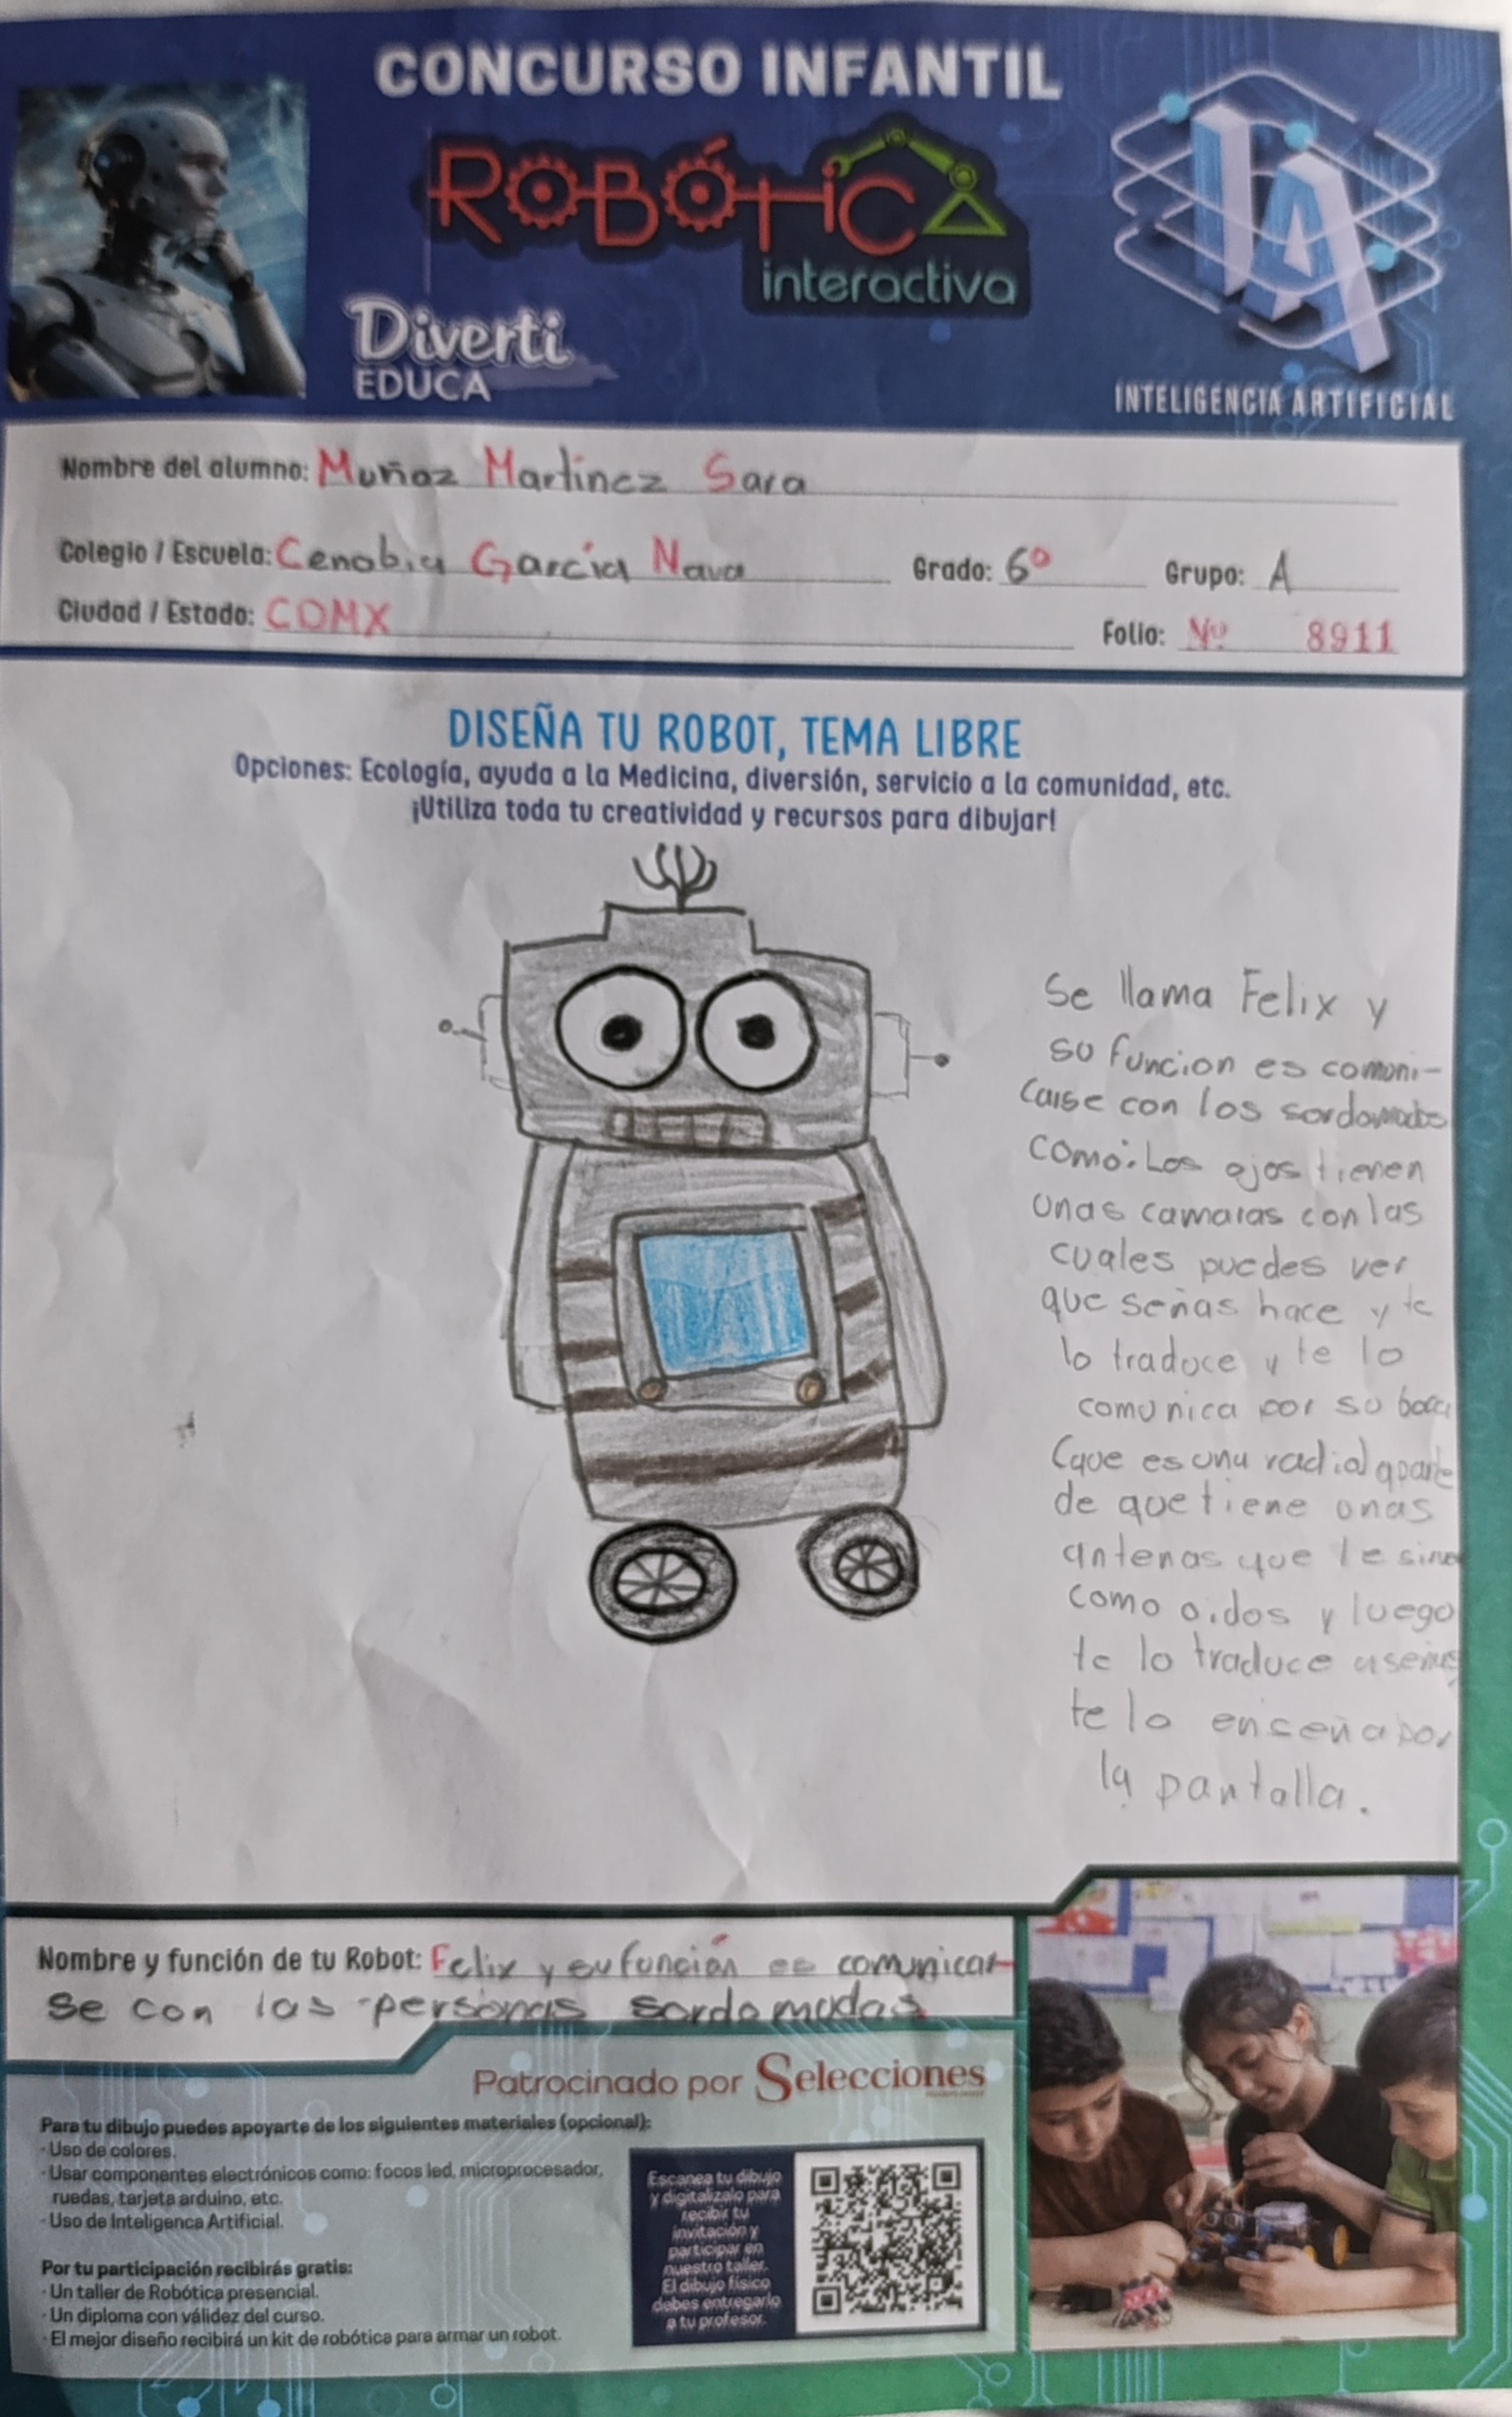 CONCURSO INFANTIL
ROBÓTICA
interactiva
Diverti
EDUCA
IA
INTELIGENCIA ARTIFICIAL
Nombre del alumno: Muñoz Martinez Sara
Colegio / Escuela: Cenobia García Nava Grado: 6° Grupo: A
Ciudad / Estado: CDMX Folio: Nº 8911
DISEÑA TU ROBOT, TEMA LIBRE
Opciones: Ecología, ayuda a la Medicina, diversión, servicio a la comunidad, etc.
¡Utiliza toda tu creatividad y recursos para dibujar!
Se llama Felix y
su funcion es comuni-
carse con los sordomudos
como: Los ojos tienen
unas camaras con las
cuales puedes ver
que señas hace y te
lo traduce y te lo
comunica por su boca
(que es una radio) aparte
de que tiene unas
antenas que le
como oidos y luego
te lo traduce a señas
te lo enseña por
la pantalla.
Nombre y función de tu Robot: Felix y su función es comunicar
se con las personas sordomudas
Patrocinado por Selecciones
Para tu dibujo puedes apoyarte de los siguientes materiales (opcional):
· Uso de colores.
· Usar componentes electrónicos como: focos led, microprocesador,
ruedas, tarjeta arduino, etc.
· Uso de Inteligenca Artificial.
Por tu participación recibirás gratis:
· Un taller de Robótica presencial.
· Un diploma con válidez del curso.
· El mejor diseño recibirá un kit de robótica para armar un robot.
Escanea tu dibujo
y digitalizalo para
recibir tu
invitación y
participar en
nuestro taller.
El dibujo físico
debes entregarlo
a tu profesor.